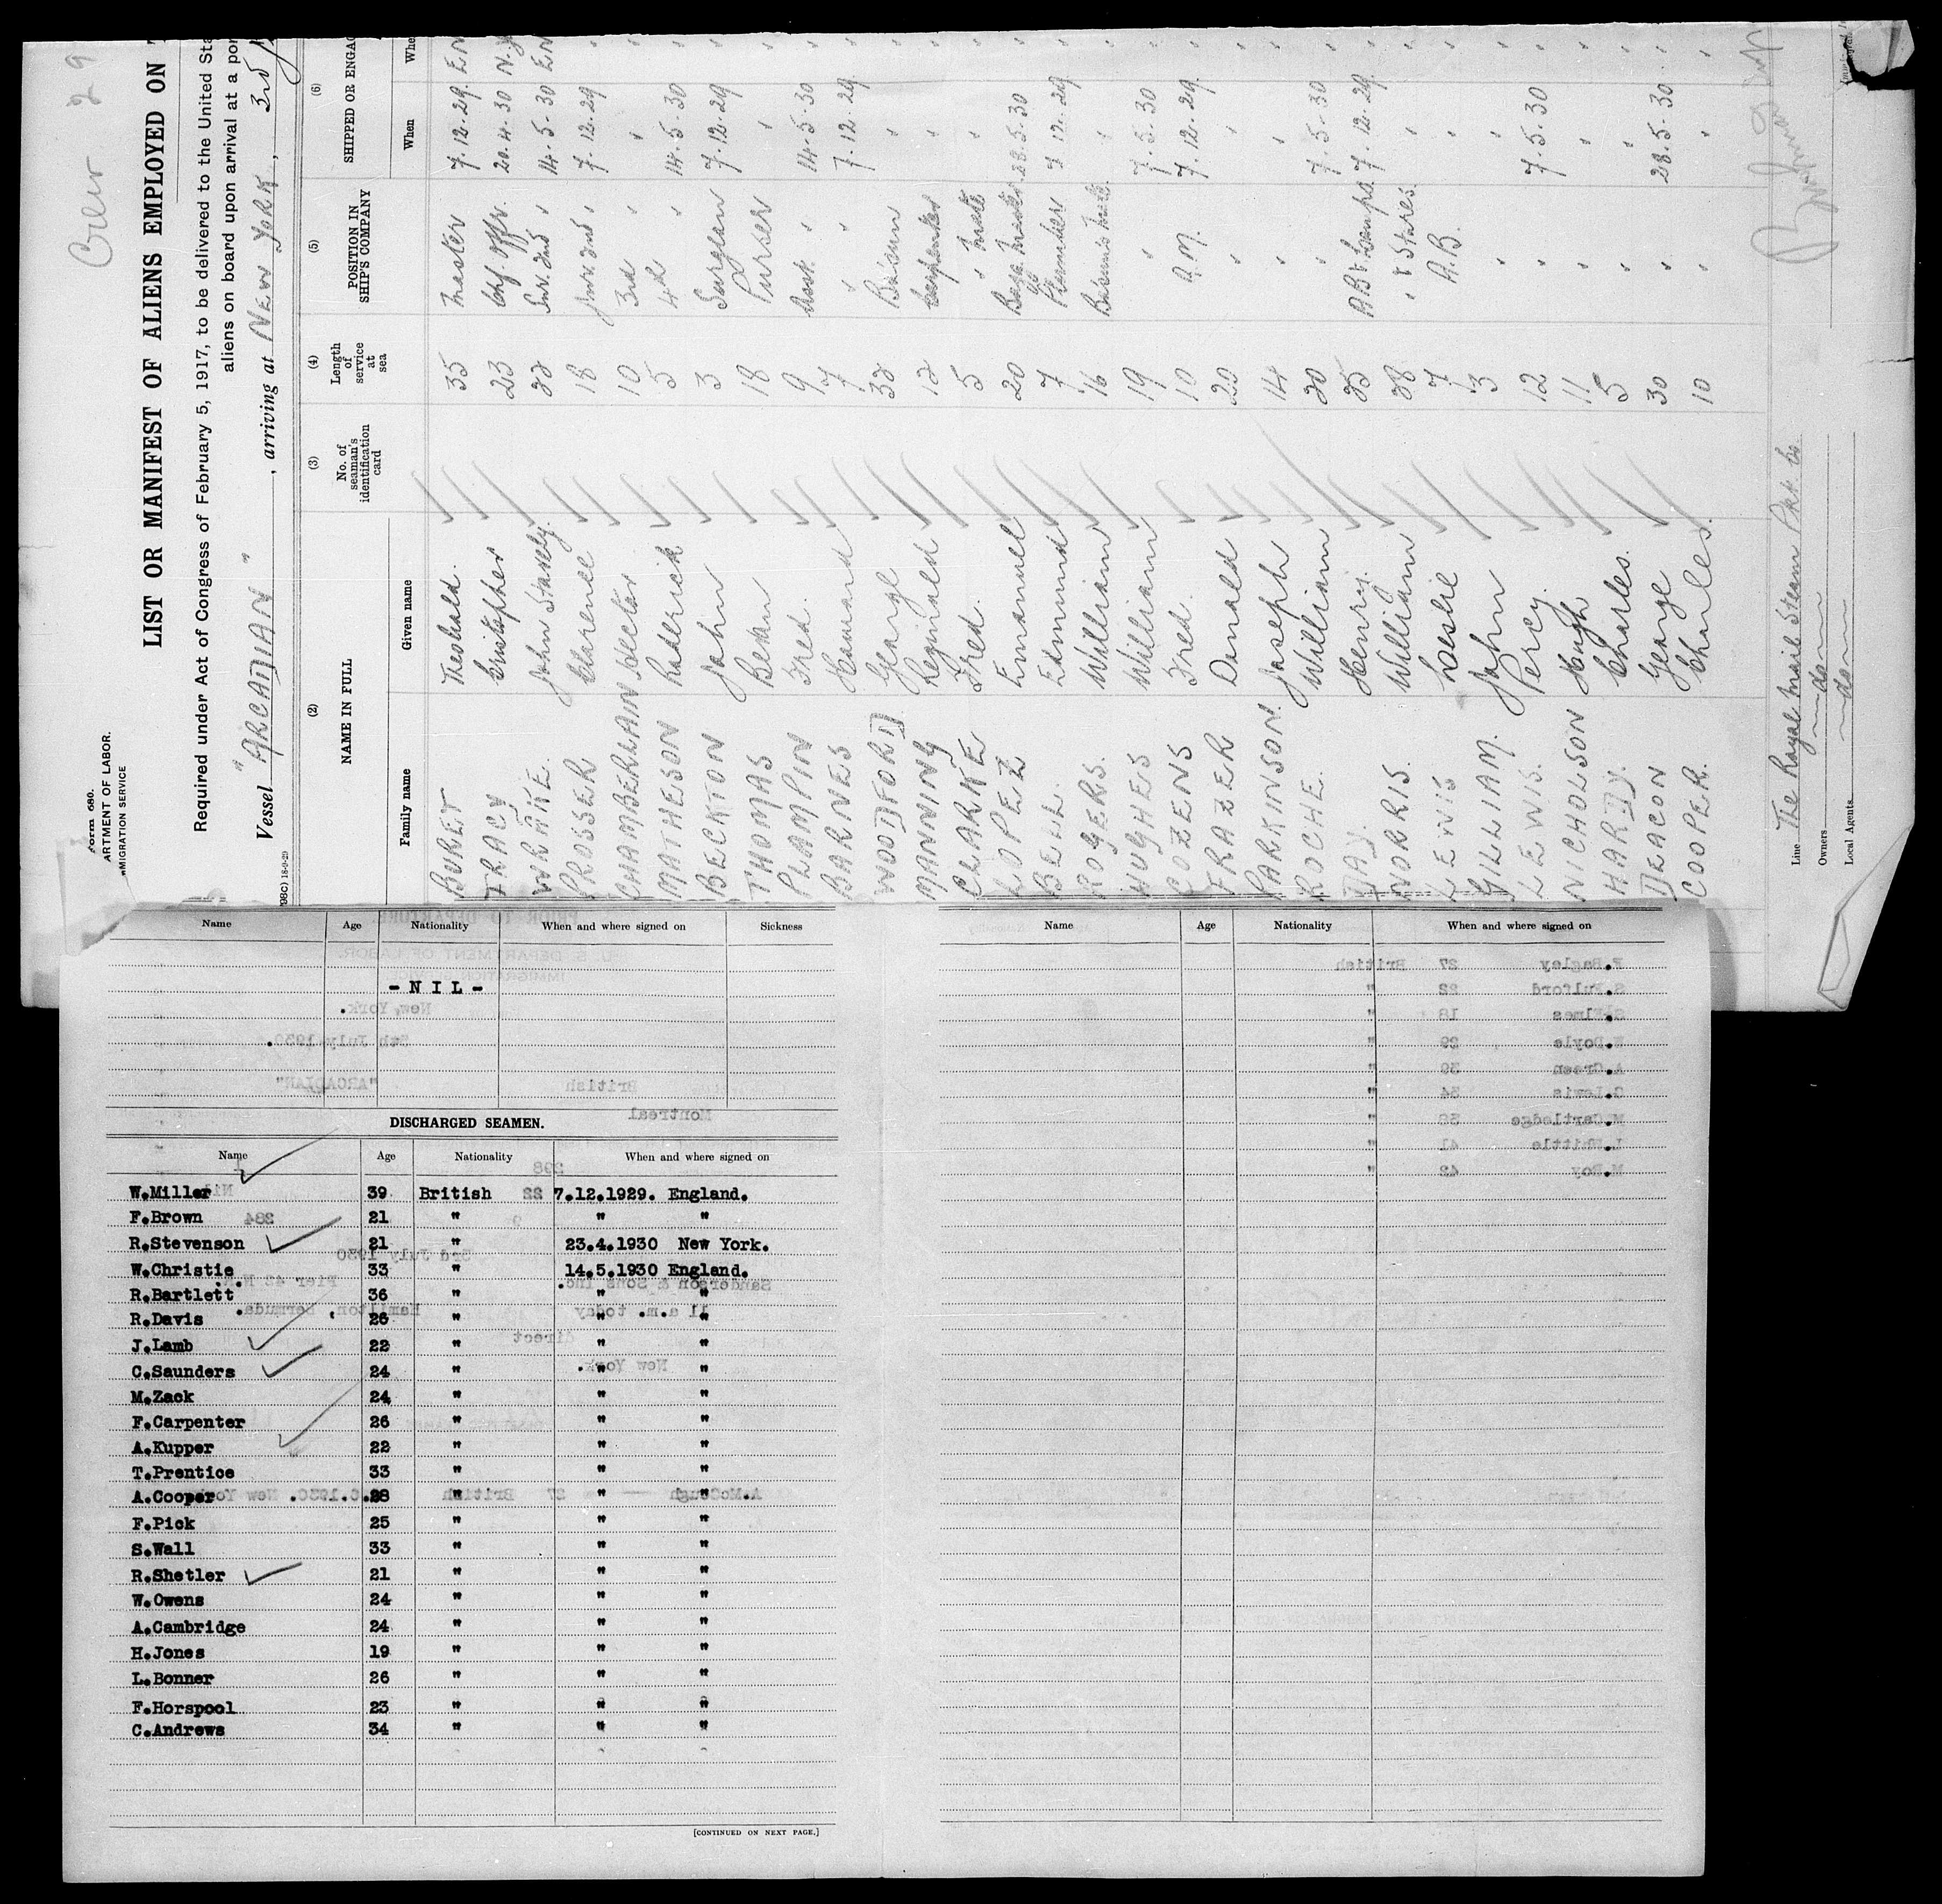 Form 680.
ARTMENT OF LABOR.
MIGRATION SERVICE
LIST OR MANIFEST OF ALIENS EMPLOYED ON
Required under Act of Congress of February 5, 1917, to be delivered to the United Sta
aliens on board upon arrival at a por
Vessel "ARCADIAN", arriving at NEW YORK, 3rd
(2) (3) (4) (5) (6)
NAME IN FULL No. of seaman's identification card Length of service at sea POSITION IN SHIP'S COMPANY SHIPPED OR ENGAG
Family name Given name When Whe
BURET Theobald. 35 Master 7.12.29. EN
TRACY Cristopher 23 Chf Offr. 20.4.30 N.Y
John 22 14.5.30 EN
PROSSER Clarence 18 7.12.29 "
CHAMBERLAIN Hector 10 3rd " " "
MATHESON Roderick 5 4th " 14.5.30 "
BECKTON John 3 Surgeon 7.12.29 "
THOMAS 18 Purser " "
PLAMPIN Fred. 9 Asst. " 14.5.30 "
BARNES Howard 7 " " 7.12.29. "
WOODFORD George 32 " "
MANNING Reginald 12 Carpenter " "
CLARKE Fred. 5 " Mate " "
LOPEZ Emanuel 20 28.5.30 "
BELL Edmund 7 Plumber 7.12.29 "
ROGERS. William 16 " "
HUGHES William 19 " 7.5.30 "
COZENS Fred. 10 Q.M. 7.12.29. "
FRAZER Donald 20 " " "
PARKINSON. Joseph 14 " " "
ROCHE. William 20 " 7.5.30 "
DAY. Henry. 25 7.12.29. "
NORRIS. William 28 " "
LEWIS Leslie 7 A.B. " "
GILLIAM. John 13 " " "
LEWIS. Percy. 12 " 7.5.30 "
NICHOLSON Hugh 11 " " "
HARDY. Charles. 5 " " "
DEACON George 30 " 28.5.30 "
COOPER. Charles. 10 " " "
Line The Royal Mail Steam Pkt. Co
Owners do
Local Agents do
Name Age Nationality When and where signed on Sickness
- N I L -
DISCHARGED SEAMEN.
Name Age Nationality When and where signed on
W.Miller 39 British 7.12.1929. England.
F.Brown 21 " " "
R.Stevenson 21 " 23.4.1930 New York.
W.Christie 33 " 14.5.1930 England.
R.Bartlett 36 " " "
R.Davis 26 " " "
J.Lamb 22 " " "
C.Saunders 24 " " "
M.Zack 24 " " "
F.Carpenter 26 " " "
A.Kupper 22 " " "
T.Prentice 33 " " "
A.Cooper 28 " " "
F.Pick 25 " " "
S.Wall 33 " " "
R.Shetler 21 " " "
W.Owens 24 " " "
A.Cambridge 24 " " "
H.Jones 19 " " "
L.Bonner 26 " " "
F.Horspool 23 " " "
C.Andrews 34 " " "
[CONTINUED ON NEXT PAGE.]
Name Age Nationality When and where signed on